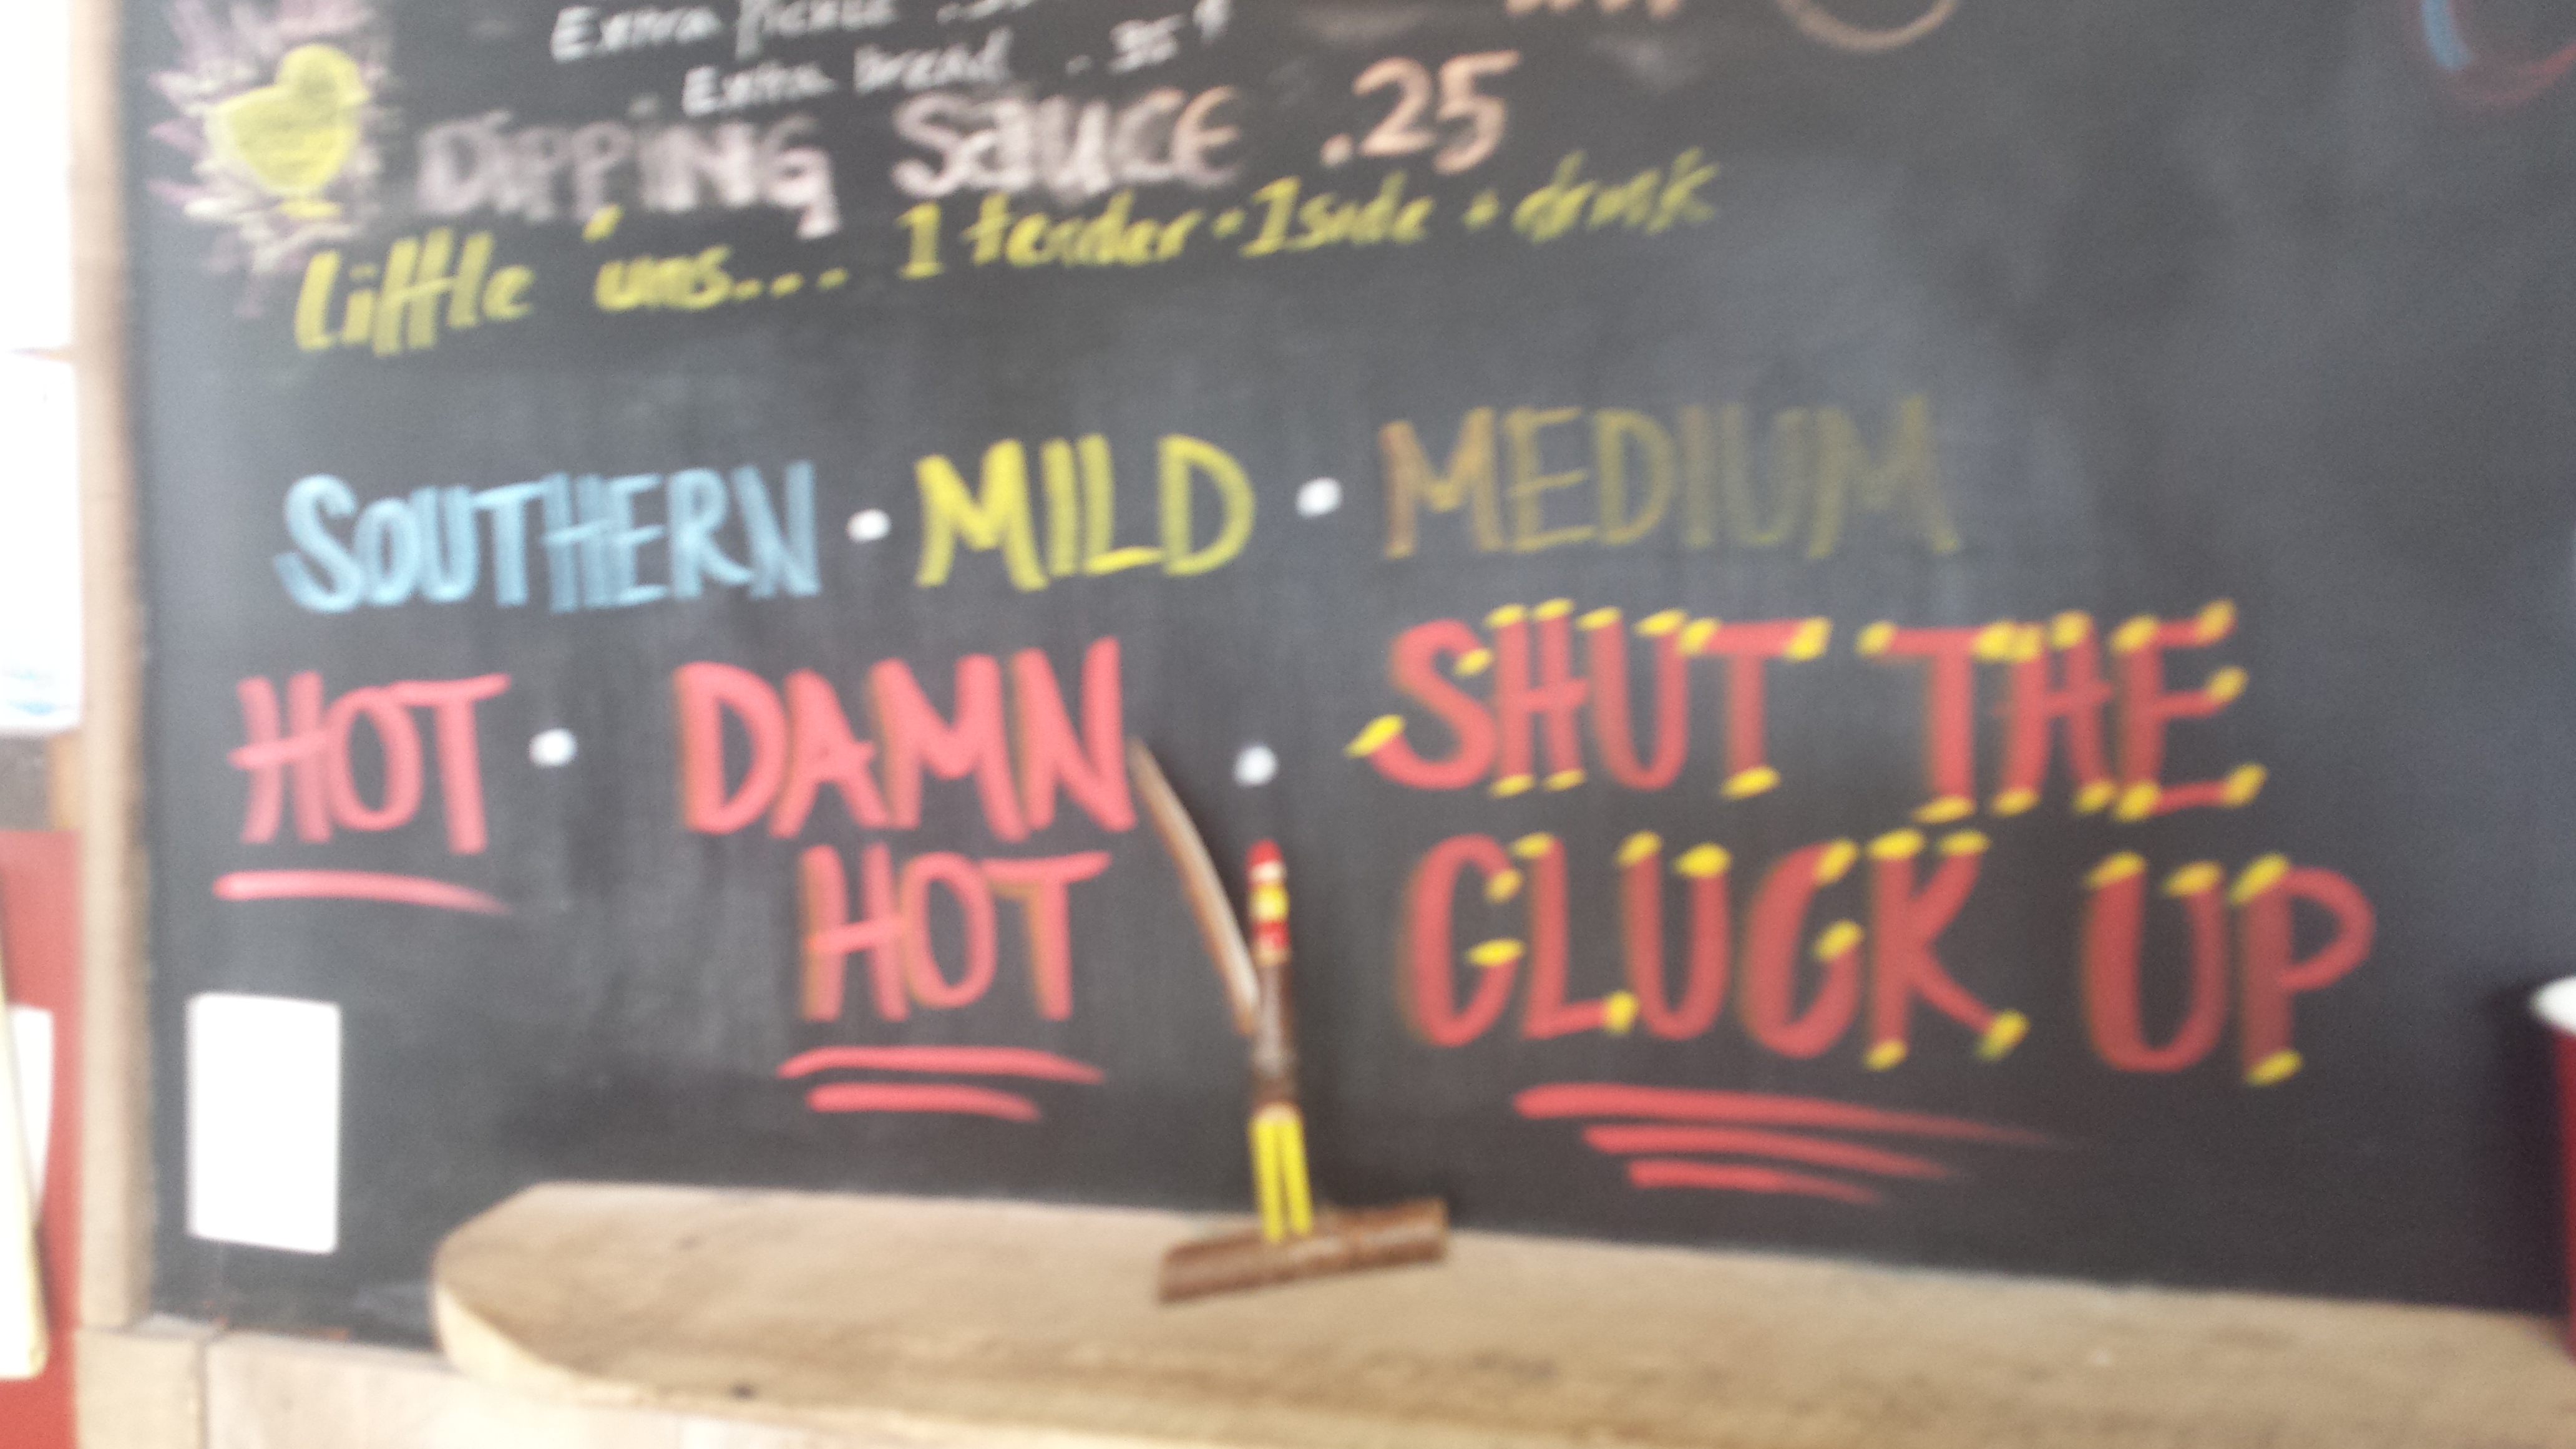 Extra Pickle
Extra bread
DIPPING SAUCE .25
Little 'uns... 1 tender + 1 side + drink
SOUTHERN • MILD • MEDIUM
HOT • DAMN HOT • SHUT THE
CLUCK UP